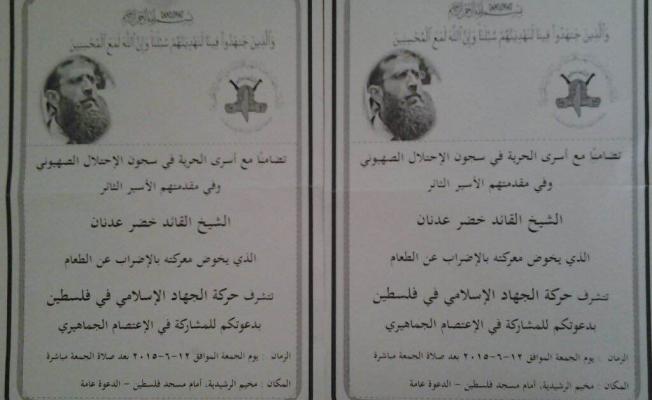 بسم الله الرحمن الرحيم
وَالَّذِينَ جَاهَدُوا فِينَا لَنَهْدِيَنَّهُمْ سُبُلَنَا وَإِنَّ اللَّهَ لَمَعَ الْمُحْسِنِينَ
تضامنًا مع أسرى الحرية في سجون الإحتلال الصهيوني
وفي مقدمتهم الأسير الثائر
الشيخ القائد خضر عدنان
الذي يخوض معركته بالإضراب عن الطعام
تتشرف حركة الجهاد الإسلامي في فلسطين
بدعوتكم للمشاركة في الإعتصام الجماهيري
الزمان : يوم الجمعة الموافق ١٢-٦-٢٠١٥ بعد صلاة الجمعة مباشرة
المكان : مخيم الرشيدية، أمام مسجد فلسطين - الدعوة عامة
بسم الله الرحمن الرحيم
وَالَّذِينَ جَاهَدُوا فِينَا لَنَهْدِيَنَّهُمْ سُبُلَنَا وَإِنَّ اللَّهَ لَمَعَ الْمُحْسِنِينَ
تضامنًا مع أسرى الحرية في سجون الإحتلال الصهيوني
وفي مقدمتهم الأسير الثائر
الشيخ القائد خضر عدنان
الذي يخوض معركته بالإضراب عن الطعام
تتشرف حركة الجهاد الإسلامي في فلسطين
بدعوتكم للمشاركة في الإعتصام الجماهيري
الزمان : يوم الجمعة الموافق ١٢-٦-٢٠١٥ بعد صلاة الجمعة مباشرة
المكان : مخيم الرشيدية، أمام مسجد فلسطين - الدعوة عامة